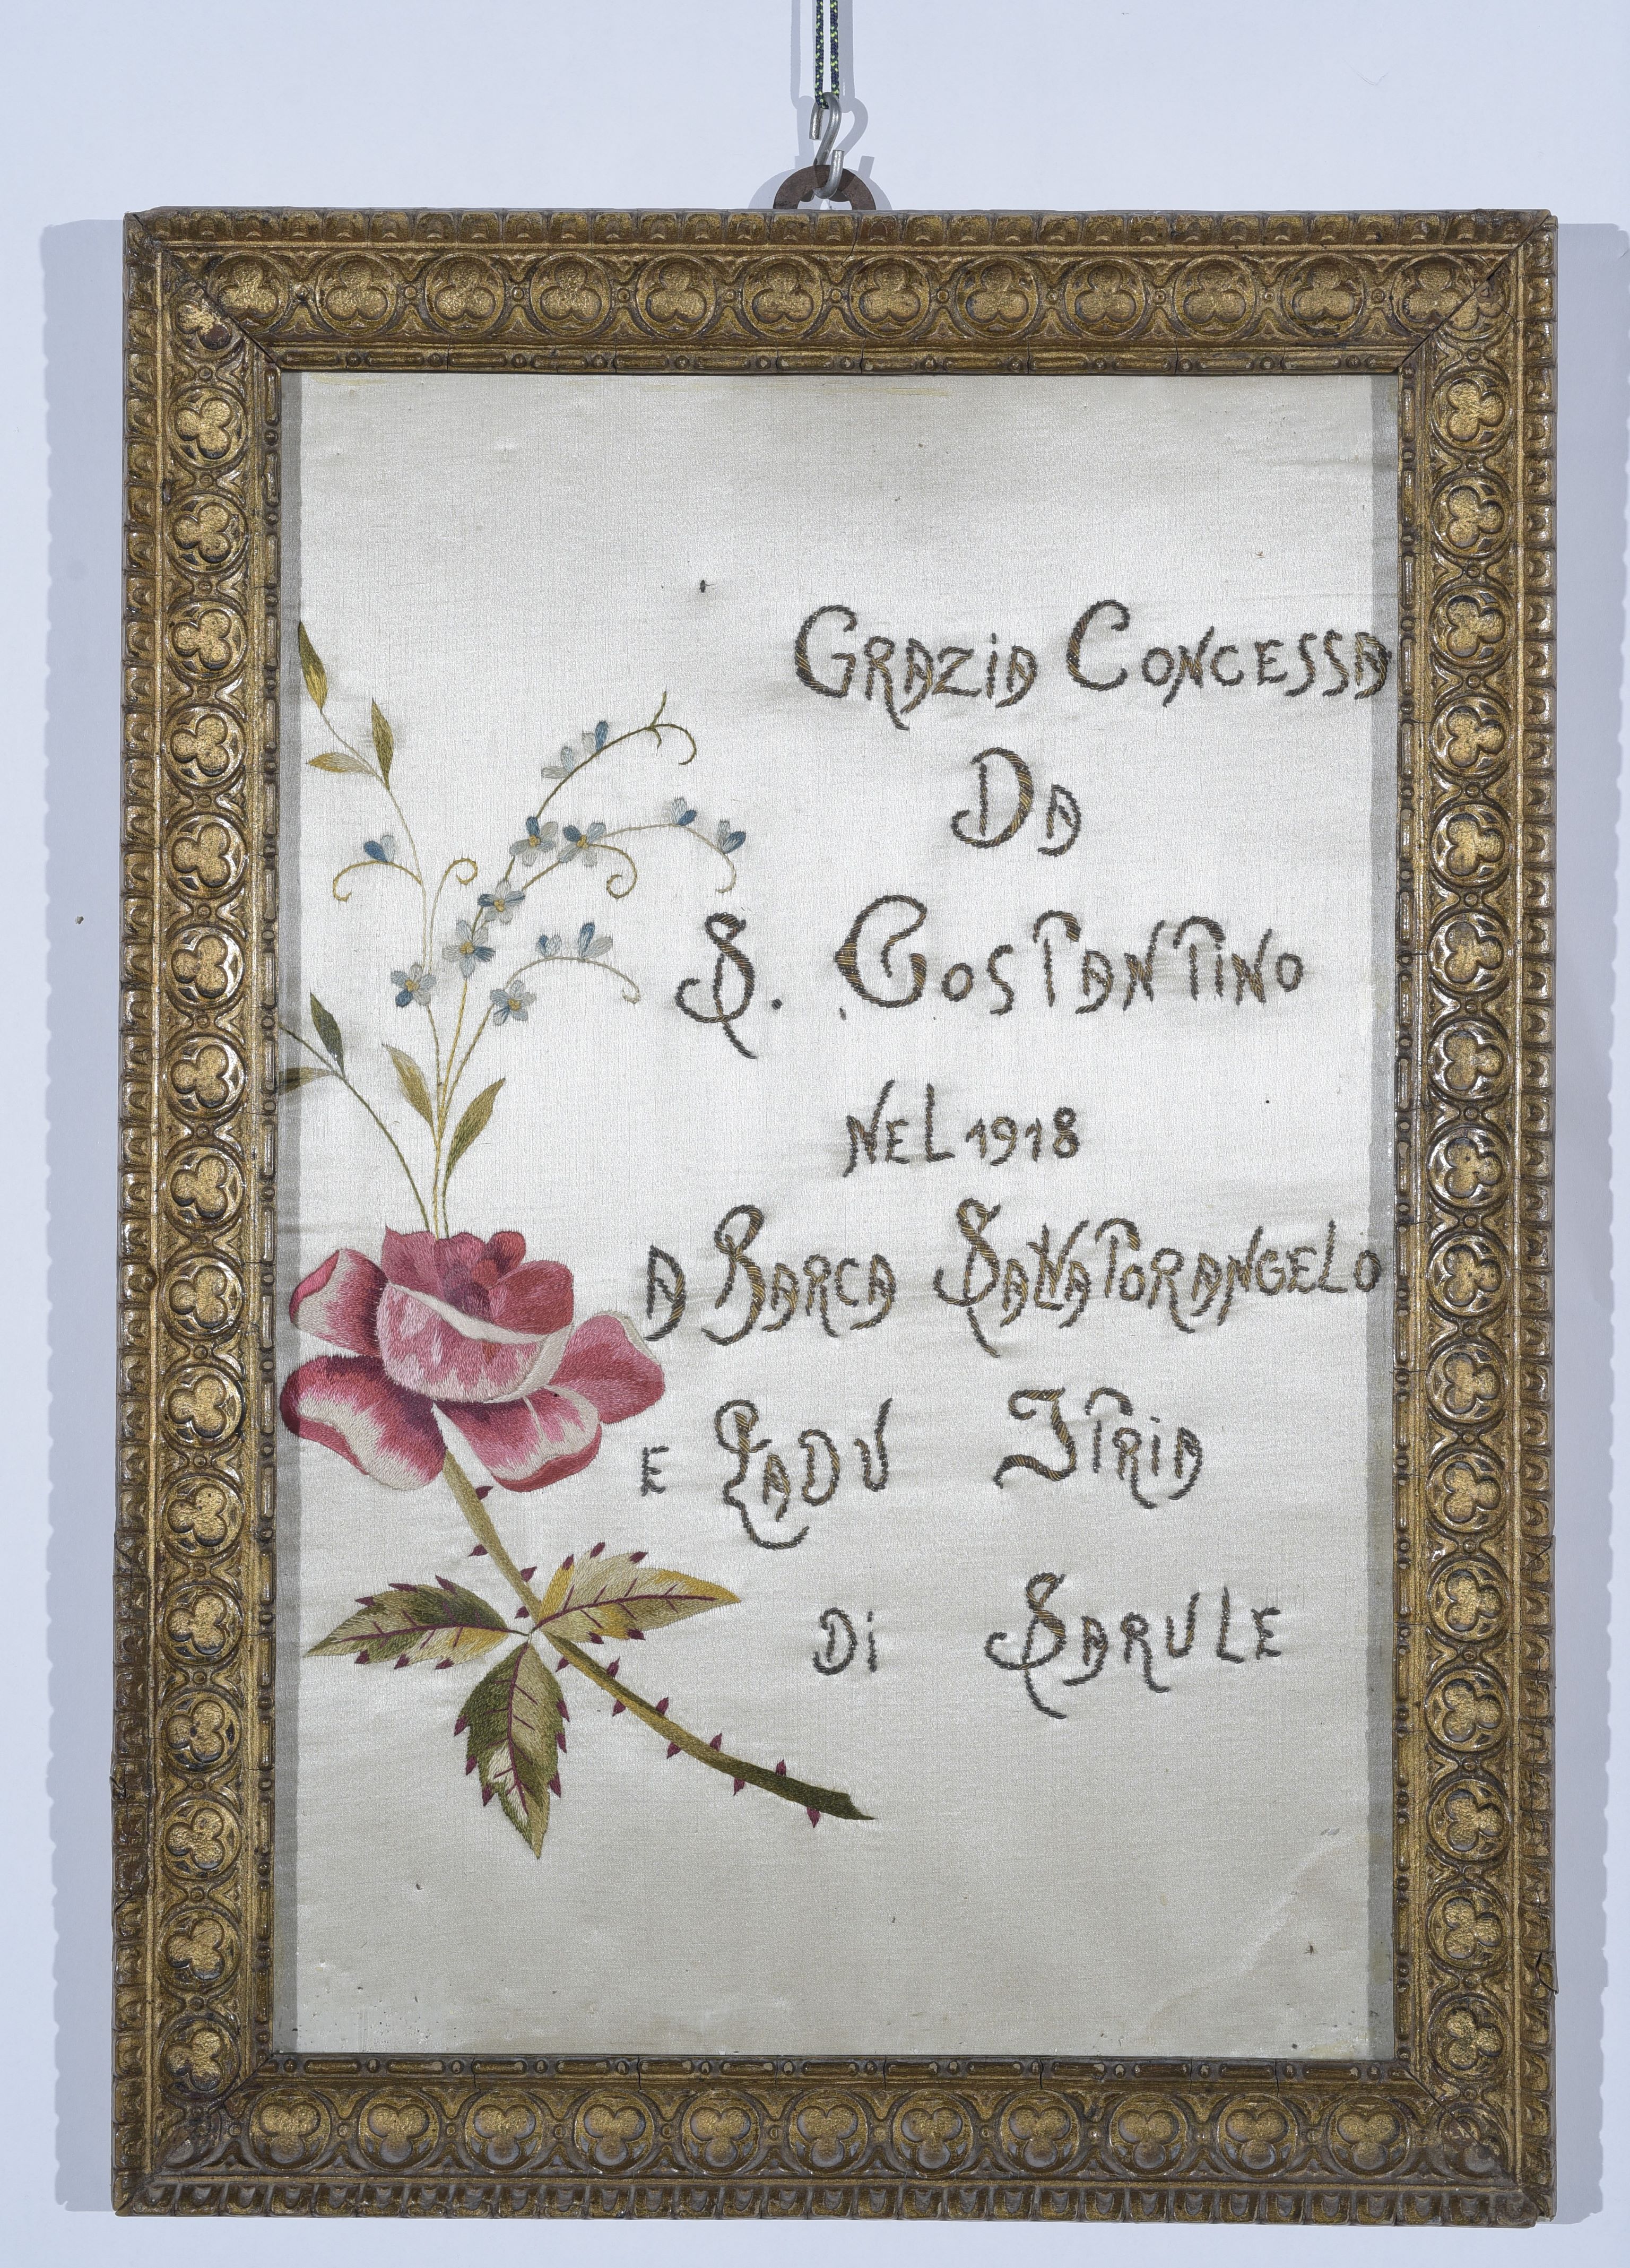 GRAZIA CONCESSA
DA
S. COSTANTINO
NEL 1918
A BARCA SALVATORANGELO
E LADU ITRIA
DI SARULE